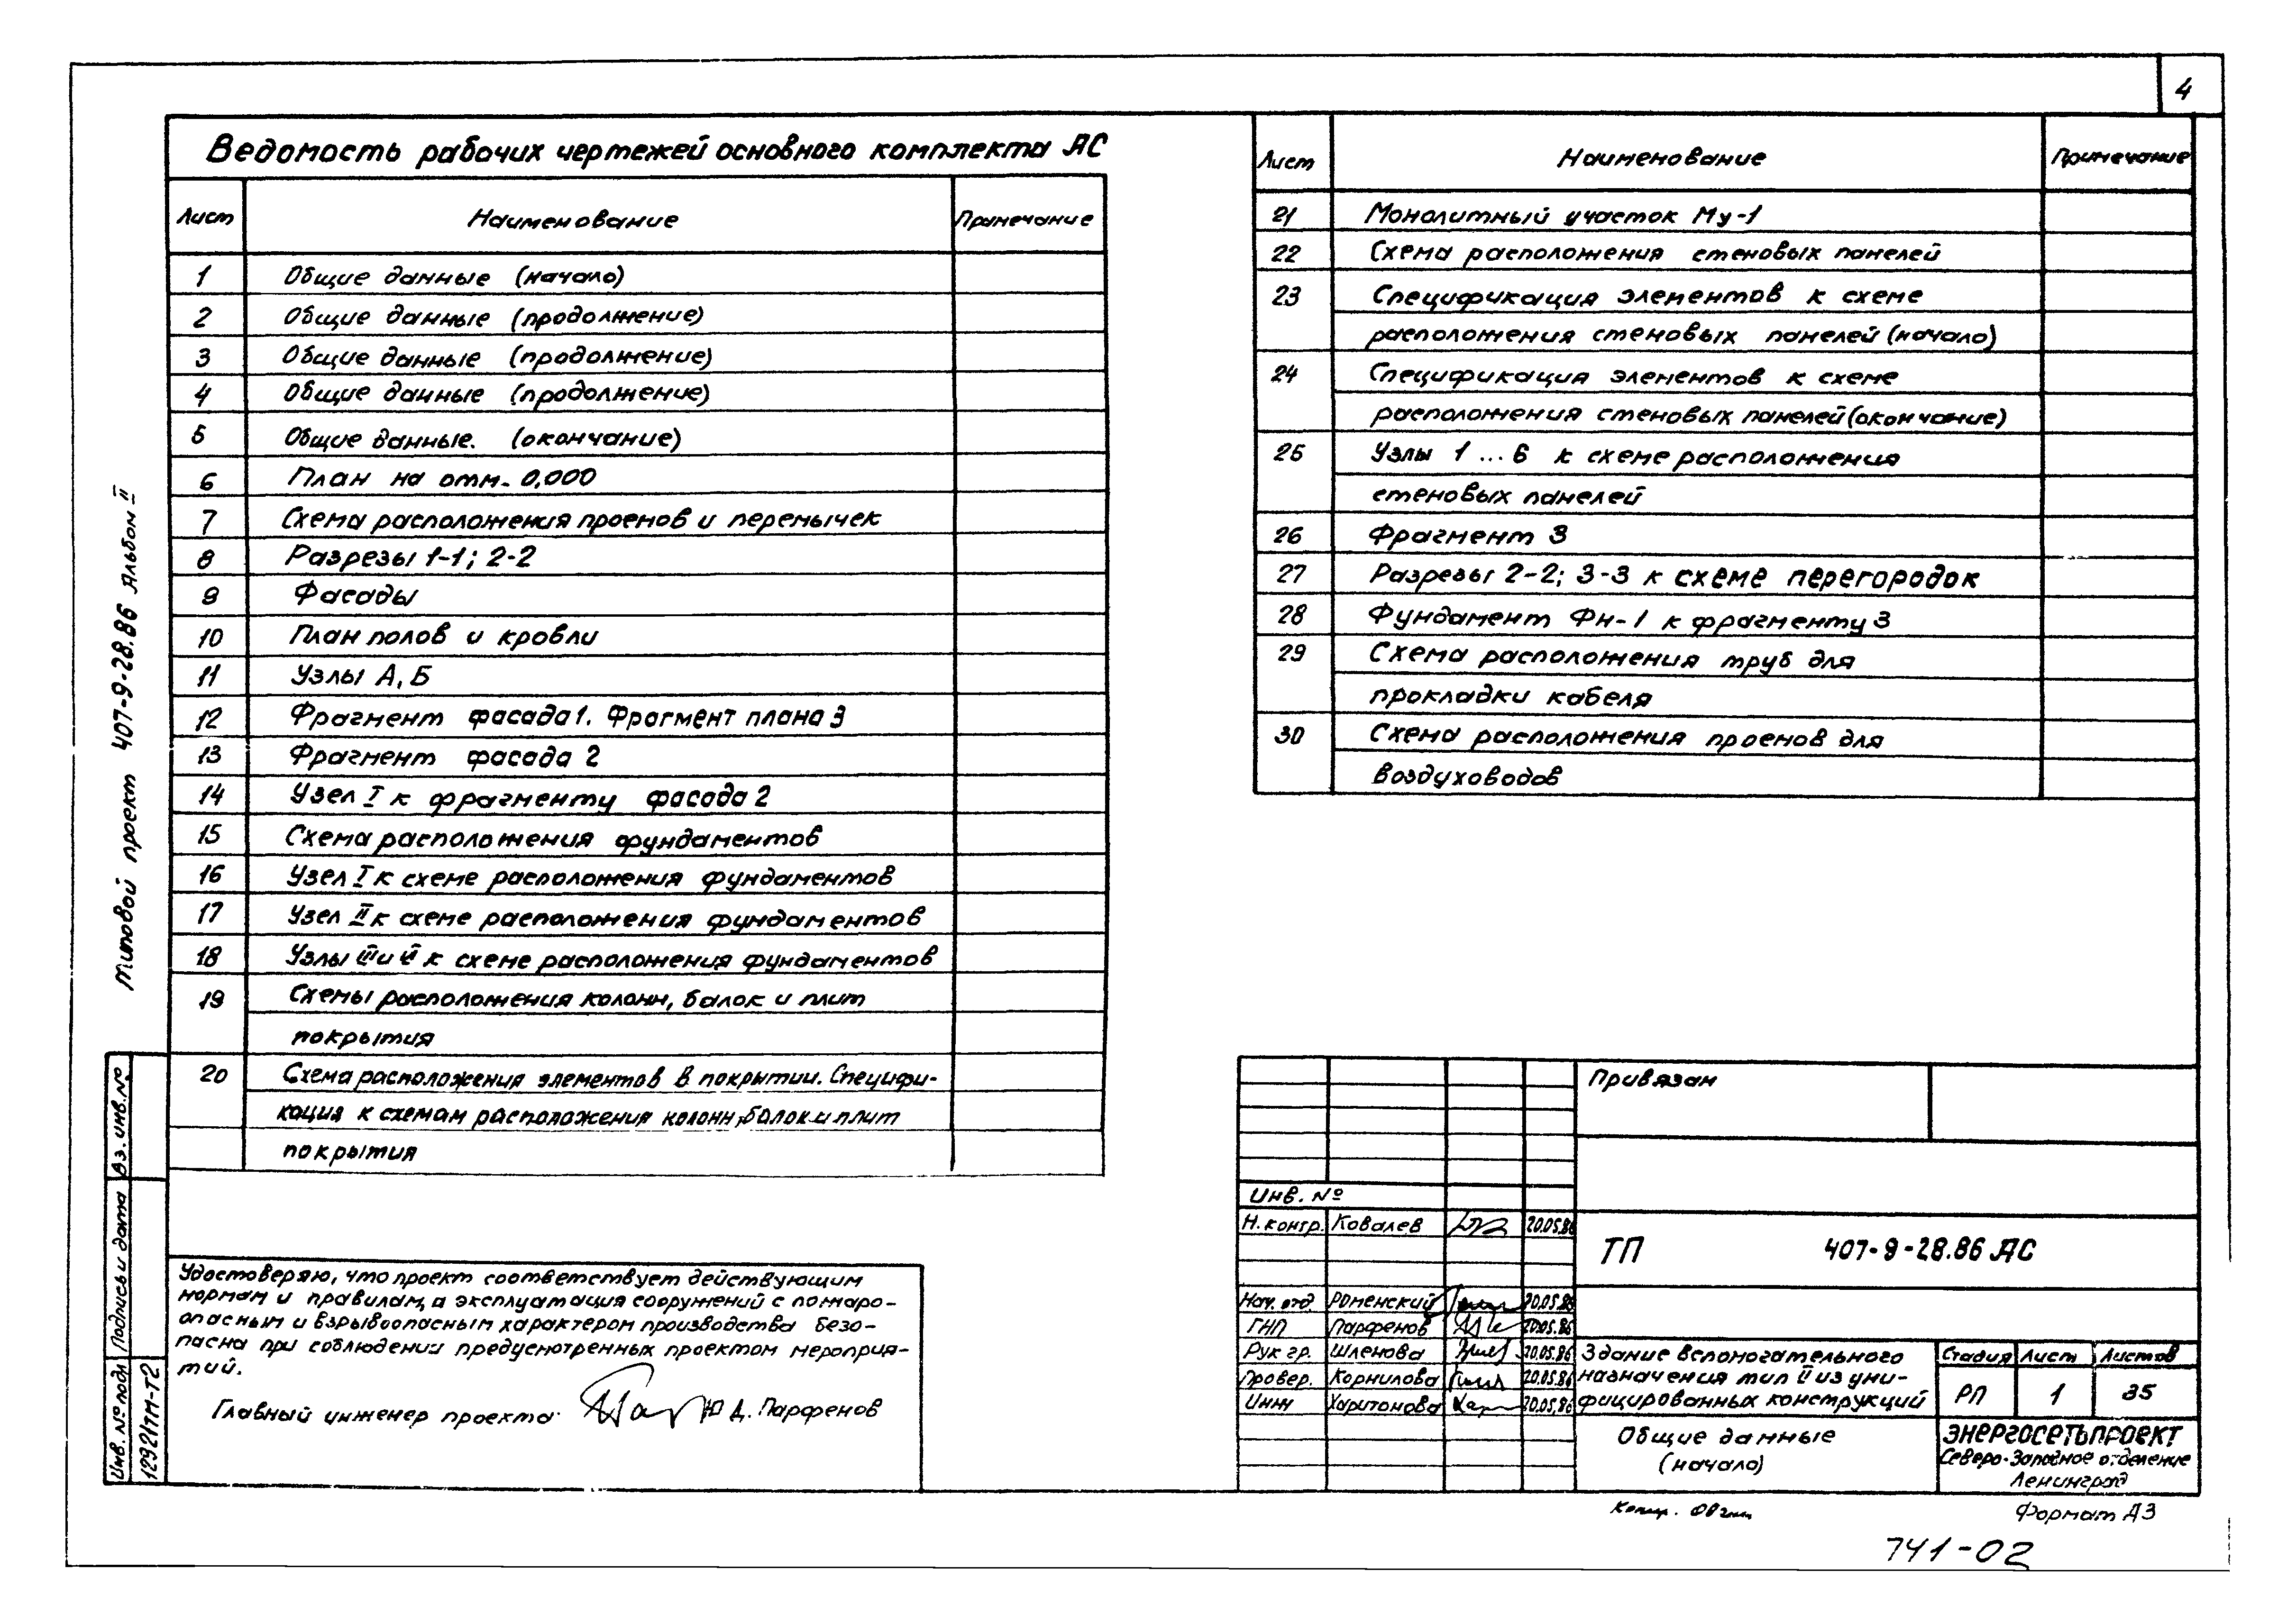 4
Ведомость рабочих чертежей основного комплекта АС
Лист Наименование Примечание
1 Общие данные (начало)
2 Общие данные (продолжение)
3 Общие данные (продолжение)
4 Общие данные (продолжение)
5 Общие данные. (окончание)
6 План на отм. 0,000
7 Схема расположения проемов и перемычек
8 Разрезы 1-1; 2-2
9 Фасады
10 План полов и кровли
11 Узлы А, Б
12 Фрагмент фасада 1. Фрагмент плана 3
13 Фрагмент фасада 2
14 Узел I к фрагменту фасада 2
15 Схема расположения фундаментов
16 Узел I к схеме расположения фундаментов
17 Узел II к схеме расположения фундаментов
18 Узлы III и VI к схеме расположения фундаментов
19 Схемы расположения колонн, балок и плит
покрытия
20 Схема расположения элементов в покрытии. Специфи-
кация к схемам расположения колонн, балок и плит
покрытия
Лист Наименование Примечание
21 Монолитный участок Му-1
22 Схема расположения стеновых панелей
23 Спецификация элементов к схеме
расположения стеновых панелей (начало)
24 Спецификация элементов к схеме
расположения стеновых панелей (окончание)
25 Узлы 1 ... 6 к схеме расположения
стеновых панелей
26 Фрагмент 3
27 Разрезы 2-2; 3-3 к схеме перегородок
28 Фундамент Фн-1 к фрагменту 3
29 Схема расположения труб для
прокладки кабеля
30 Схема расположения проемов для
воздуховодов
Типовой проект 407-9-28.86 Альбом II
Вз. инв. №
Подпись и дата
Инв. № подл
12921тм-т2
Удостоверяю, что проект соответствует действующим
нормам и правилам, а эксплуатация сооружений с пожаро-
опасным и взрывоопасным характером производства безо-
пасна при соблюдении предусмотренных проектом мероприя-
тий.
Главный инженер проекта Ю Д. Парфенов
Привязан
Инв. №
Н. контр. Ковалев 20.05.86
ТП 407-9-28.86 АС
Нач. отд. Роменский 20.05.86
ГИП Парфенов 20.05.86
Рук гр. Шленова 20.05.86
Провер. Корнилова 20.05.86
Инж Харитонова 20.05.86
Здание вспомогательного
назначения тип II из уни-
фицированных конструкций
Стадия Лист Листов
РП 1 35
Общие данные
(начало)
ЭНЕРГОСЕТЬПРОЕКТ
Северо-Западное отделение
Ленинград
Копир. Формат А3
741-02